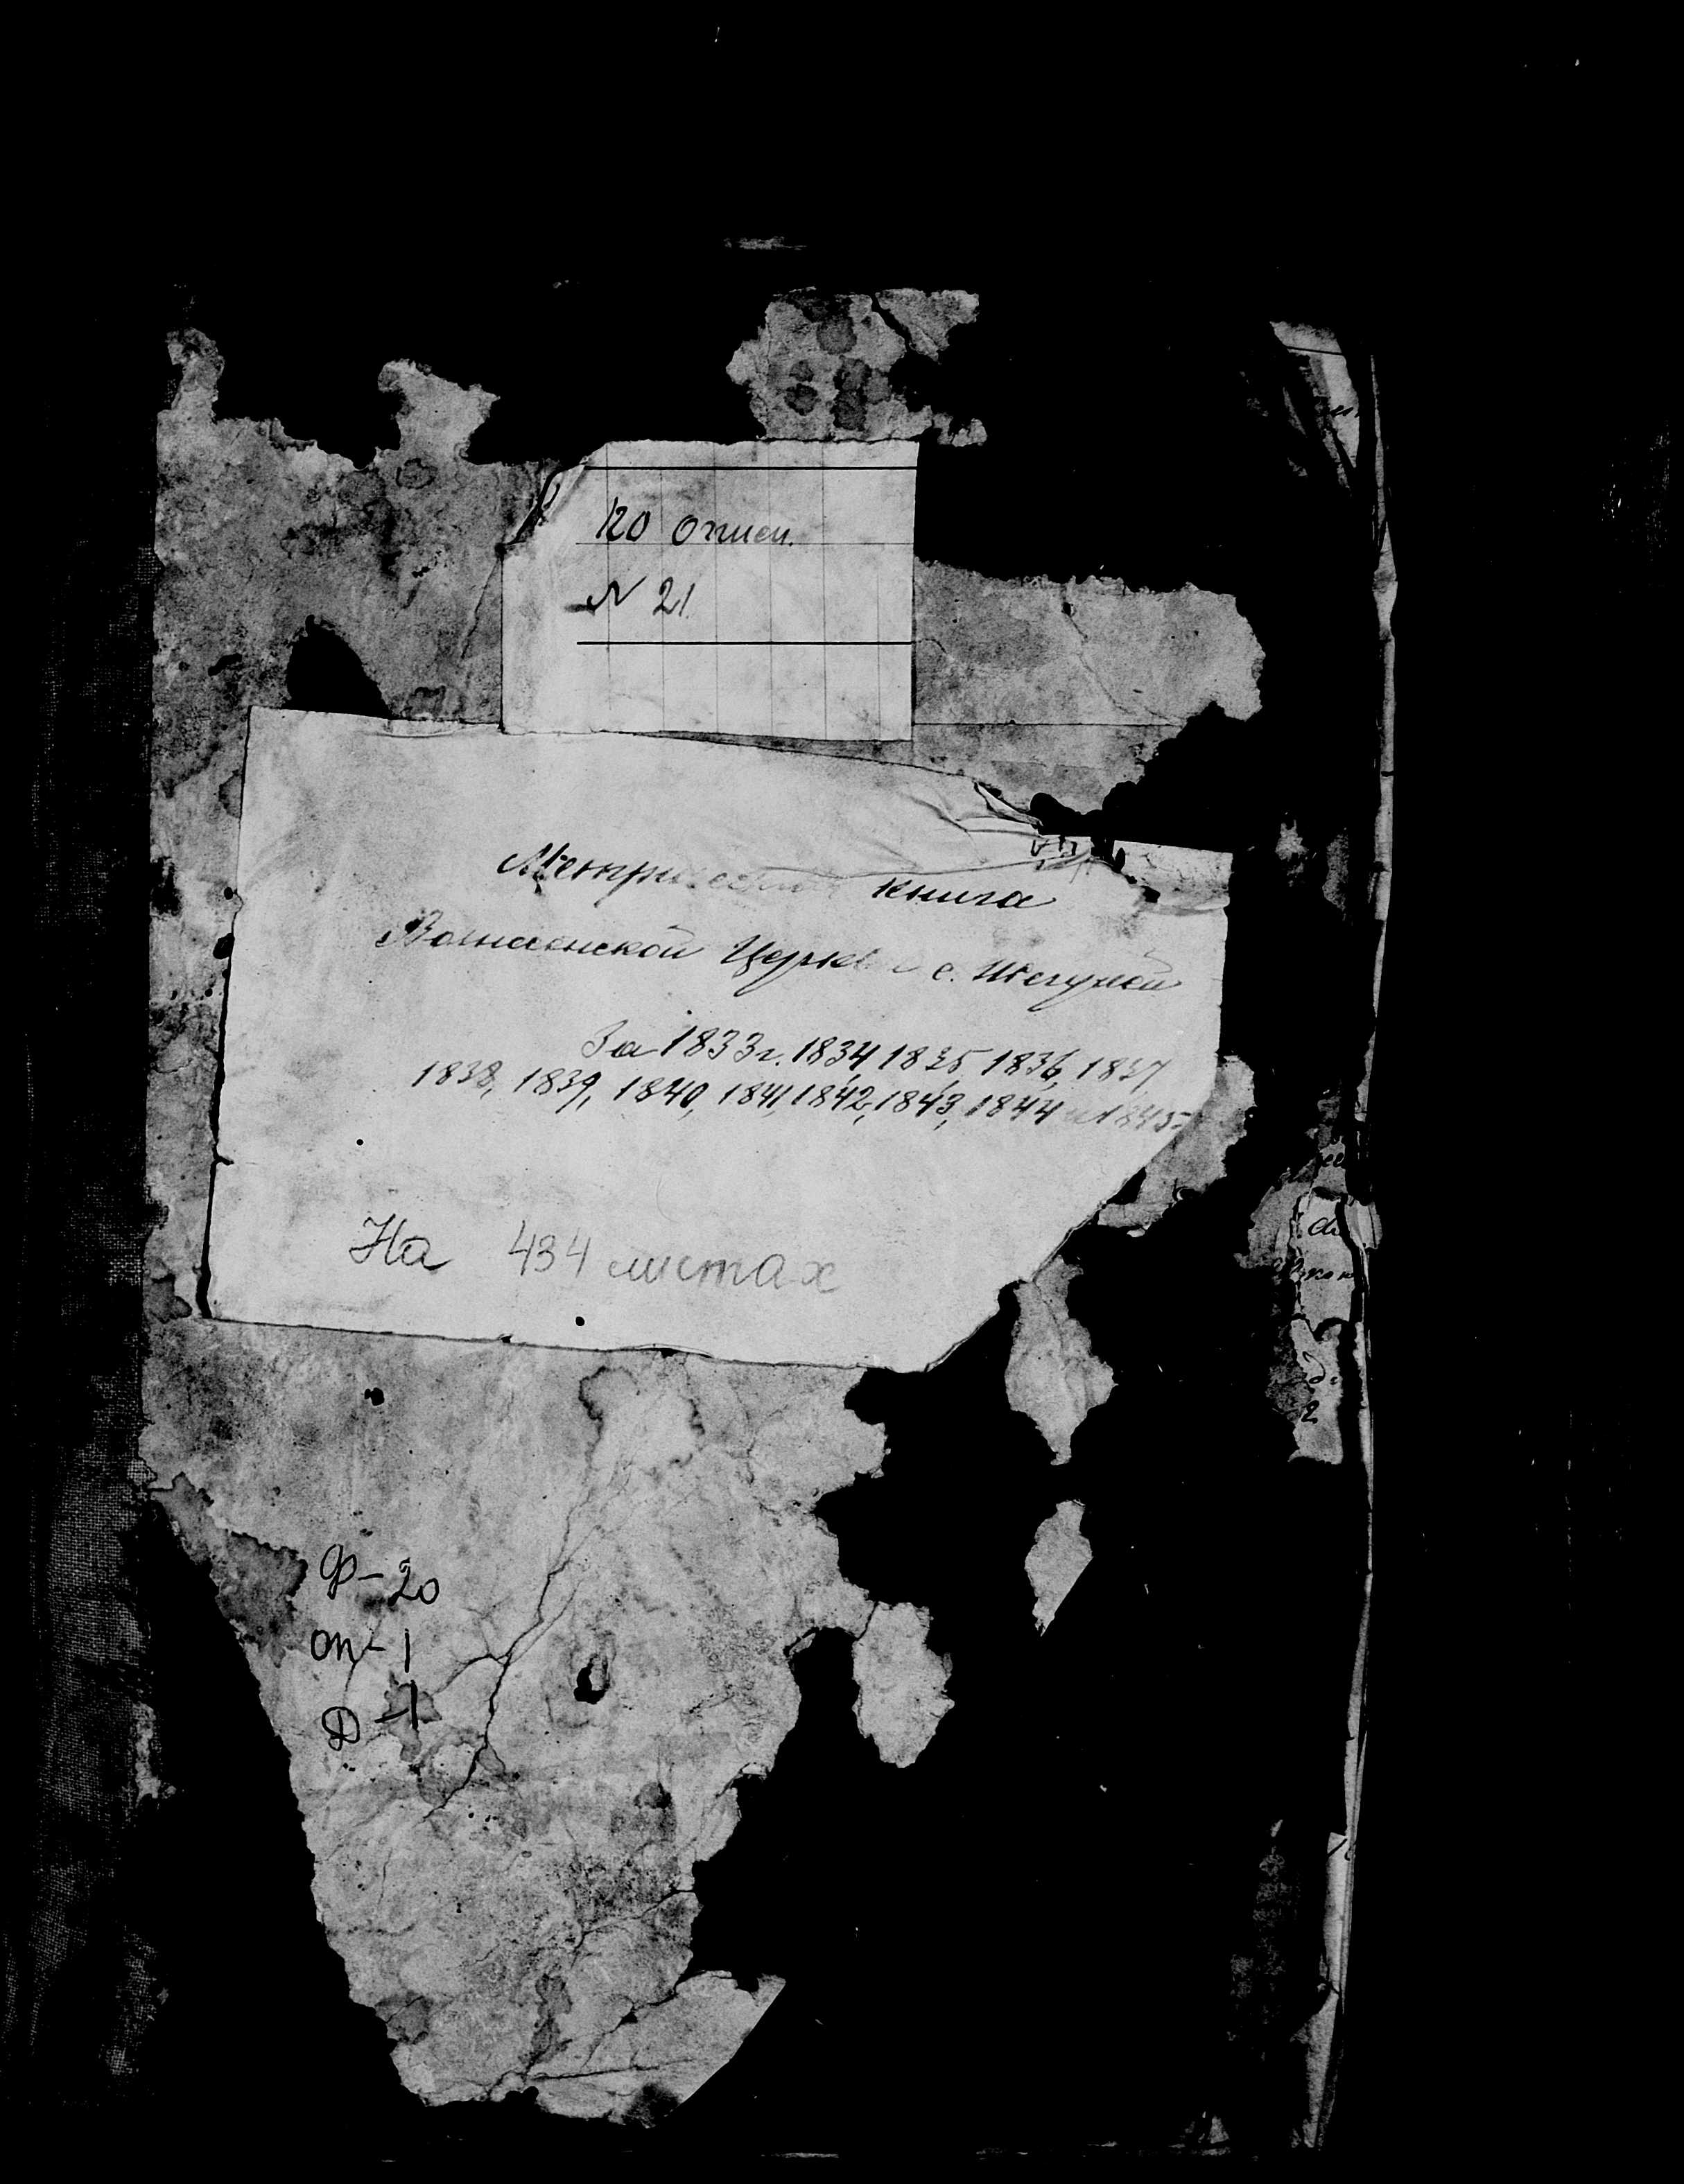 по описи.
N 21.
Метрическая книга
Вознесенской Церкви с.
За 1833 г. 1834, 1835, 1836, 1837
1838, 1839, 1840, 1841, 1842, 1843, 1844 и 1845
На 434 листах
Ф-20
оп-1
Д-1